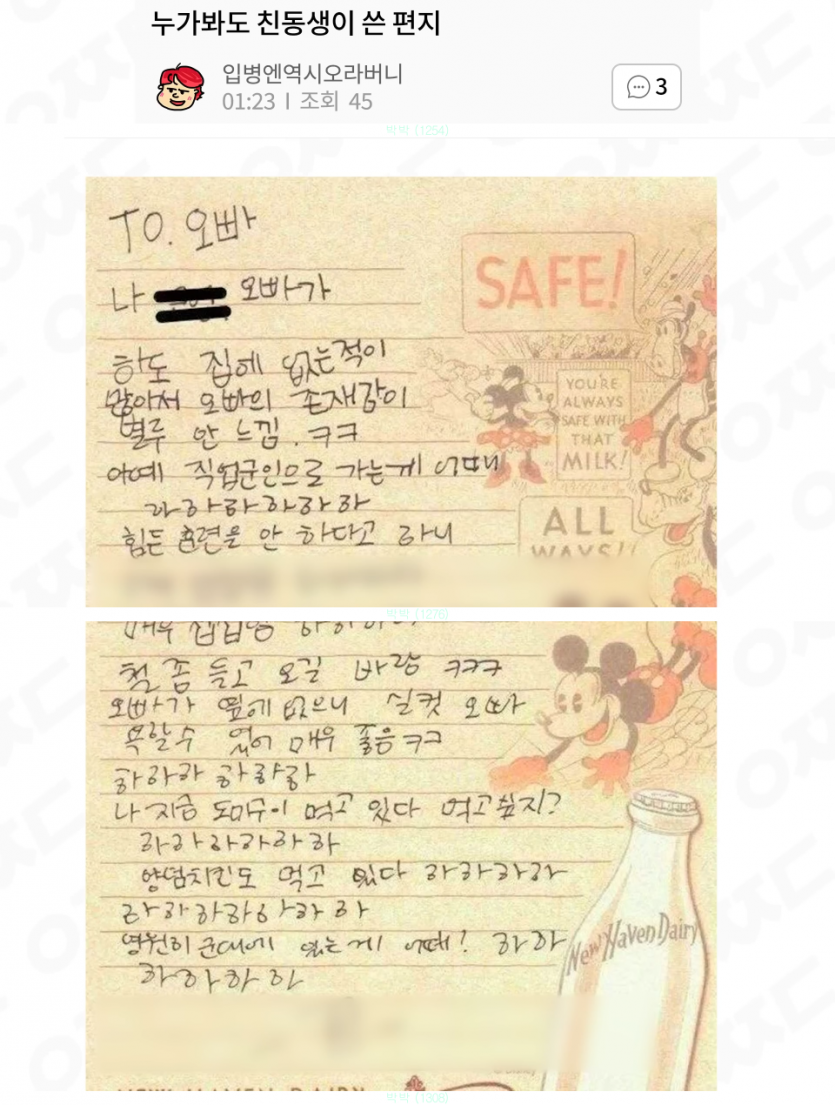 누가봐도 친동생이 쓴 편지
입병엔역시오라버니
01:23 | 조회 45
3
박박 (1254)
TO. 오빠
나 오빠가
하도 집에 없는적이
많아서 오빠의 존재감이
별루 안 느낌. ㅋㅋ
아예 직업군인으로 가는게 어때
라하하하하하하
힘든 훈련을 안 하다고 하니
SAFE!
YOU'RE
ALWAYS
SAFE WITH
THAT
MILK!
ALL
WAYS!!
박박 (1276)
매우
철 좀 들고 오길 바람 ㅋㅋㅋ
오빠가 옆에 없으니 실컷 오빠
욕할수 있어 매우 좋음ㅋㅋ
하하하 하햐하
나 지금 도미수이 먹고 있다 먹고싶지?
하하하하하하
양념치킨도 먹고 있다 하하하하
하하하하하하하
영원히 군대에 있는게 어때! 하하
하하하하
New Haven Dairy
박박 (1308)